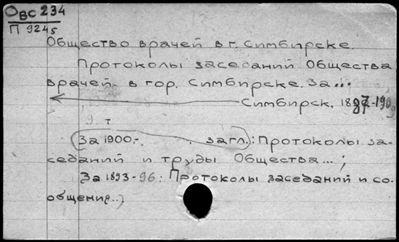 Овс 234
П 9245
Общество врачей в г. Симбирске.
Протоколы заседаний Общества
врачей в гор. Симбирске. За...
Симбирск, 1887-190
9 т
За 1900-. . загл.: Протоколы за-
седаний и труды Общества...;
За 1893-96: Протоколы заседаний и со-
общения...)